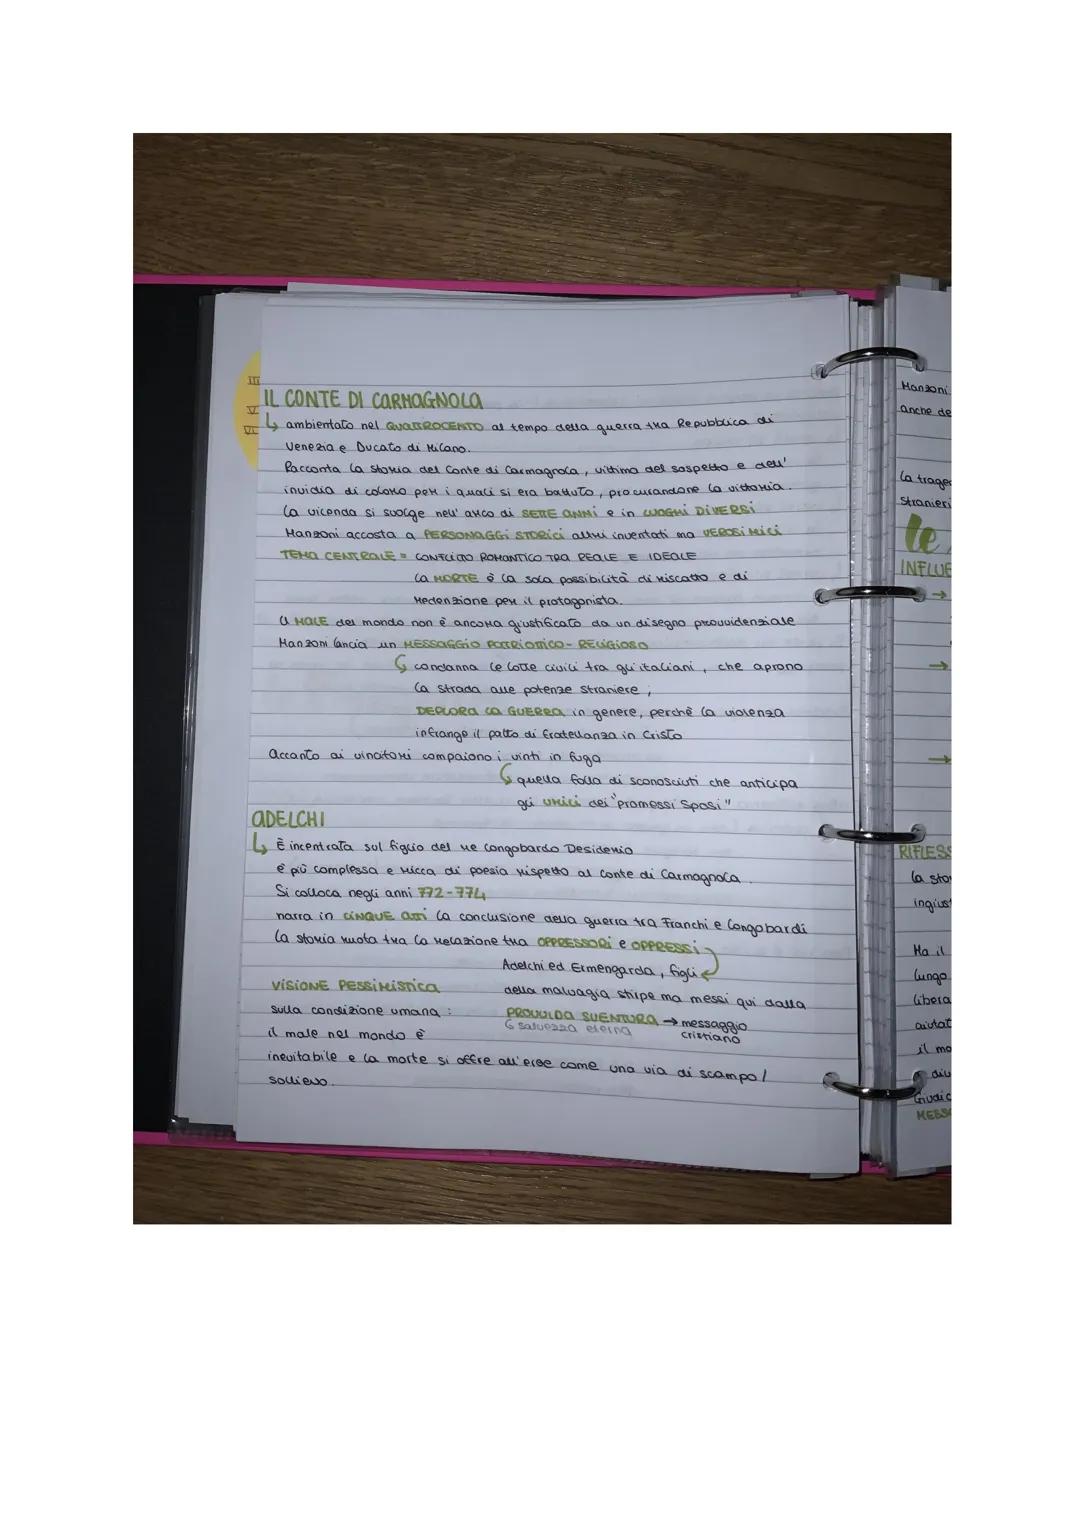 III
V
VI
IL CONTE DI CARMAGNOLA
↳ ambientato nel QUATTROCENTO al tempo della guerra tra Repubblica di
Venezia e Ducato di Milano.
Racconta la storia del conte di Carmagnola, vittima del sospetto e dell'
invidia di coloro per i quali si era battuto, procurandone la vittoria.
La vicenda si svolge nell'arco di SETTE ANNI e in LUOGHI DIVERSI
Manzoni accosta a PERSONAGGI STORICI altri inventati ma VEROSIMILI
TEMA CENTRALE = CONFLITTO ROMANTICO TRA REALE E IDEALE
La MORTE è la sola possibilità di riscatto e di
redenzione per il protagonista.
Il MALE del mondo non è ancora giustificato da un disegno provvidenziale
Manzoni lancia un MESSAGGIO PATRIOTTICO-RELIGIOSO
↳ condanna le lotte civili tra gli italiani, che aprono
la strada alle potenze straniere;
DEPLORA LA GUERRA in genere, perchè la violenza
infrange il patto di fratellanza in Cristo
Accanto ai vincitori compaiono i vinti in fuga
↳ quella folla di sconosciuti che anticipa
gli umili dei "promessi Sposi"
ADELCHI
↳ È incentrata sul figlio del re longobardo Desiderio
è più complessa e ricca di poesia rispetto al conte di Carmagnola.
Si colloca negli anni 772-774
narra in CINQUE atti la conclusione della guerra tra Franchi e Longobardi
La storia ruota tra la relazione tra OPPRESSORI e OPPRESSI
Adelchi ed Ermengarda, figli
della malvagia stirpe ma messi qui dalla
PROVVIDA SVENTURA → messaggio
cristiano
↳ salvezza eterna
VISIONE PESSIMISTICA
sulla condizione umana:
il male nel mondo è
inevitabile e la morte si offre all'eroe come una via di scampo/
sollievo.
Manzoni
anche de
la trage
stranieri
le
INFLUE
→
→
→
RIFLESS
la sto
ingius
Ma il
lungo
libera
aiutat
il mo
div
Giudic
MESS